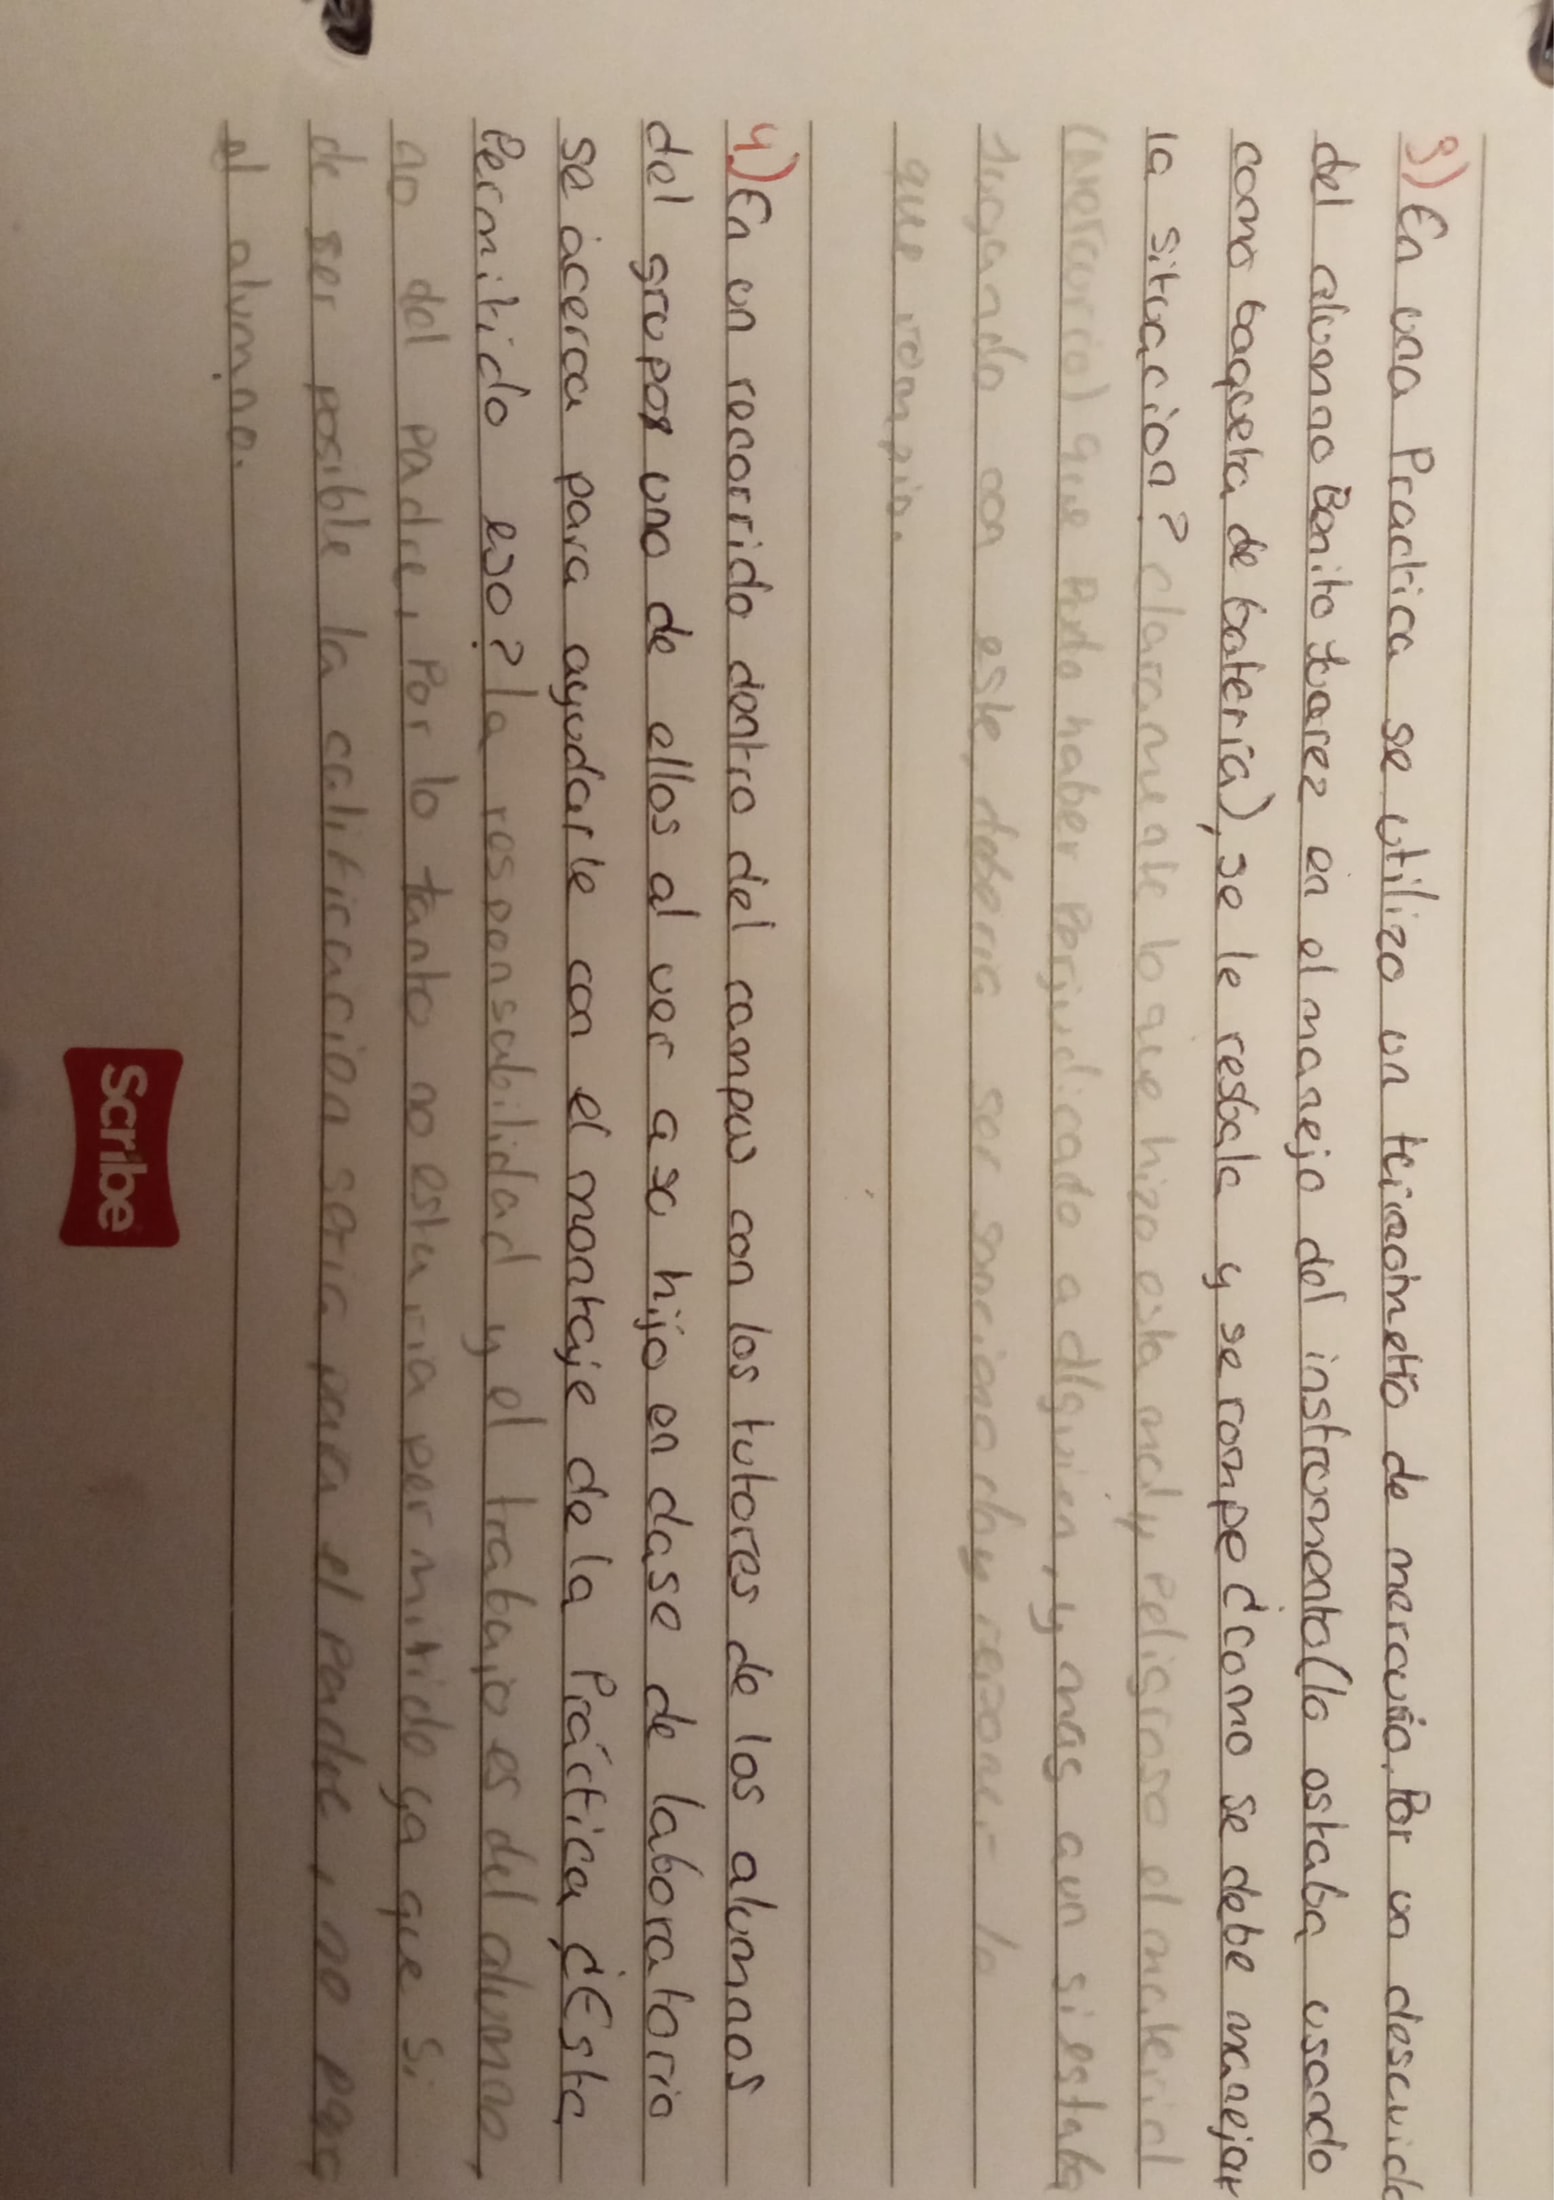 3) En una Practica se utilizo un termometro de mercurio. Por un descuido
del alumno Benito Juarez en el manejo del instrumento (lo estaba usando
como baqueta de bateria), se le resbala y se rompe ¿como se debe manejar
la situacion? claramente lo que hizo esta mal y peligroso el material
(Mercurio) que pudo haber perjudicado a alguien, y mas aun si estaba
Jugando con este, deberia ser sancionado y lo
que rompio.
4) En un recorrido dentro del campus con los tutores de los alumnos
del grupo uno de ellos al ver a su hijo en clase de laboratorio
se acerca para ayudarle con el montaje de la Práctica ¿Esta
Permitido eso? la responsabilidad y el trabajo es del alumno,
no del padre, Por lo tanto no estaria permitido ya que si
de ser posible la calificacion seria para el padre, no para
el alumno.
Scribe